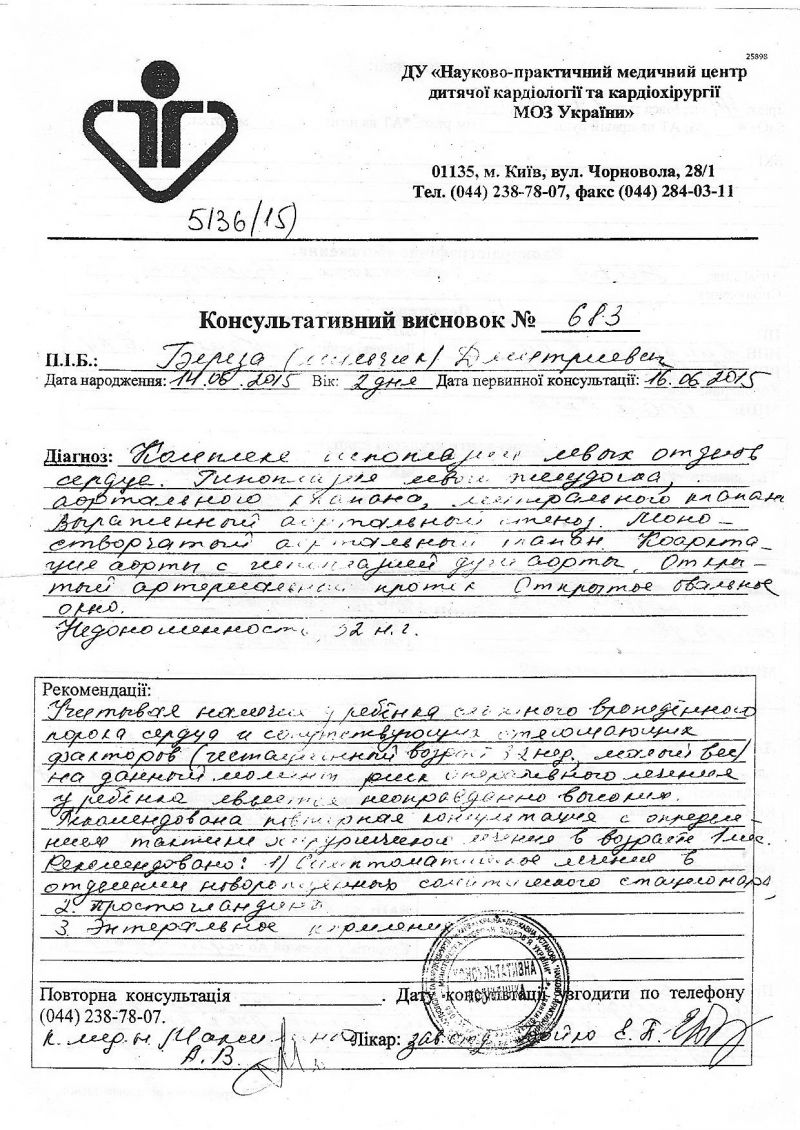 25898
ДУ «Науково-практичний медичний центр
дитячої кардіології та кардіохірургії
МОЗ України»
01135, м. Київ, вул. Чорновола, 28/1
Тел. (044) 238-78-07, факс (044) 284-03-11
5136/15)
Консультативний висновок № 683
П.І.Б.: Береза (мальчик) Дмитриевич
Дата народження: 14.06.2015 Вік: 2 дня Дата первинної консультації: 16.06.2015
Діагноз: Комплекс гипоплазии левых отделов
сердца. Гипоплазия левого желудочка,
аортального клапана, митрального клапана
Выраженный аортальный стеноз. Моно-
створчатый аортальный клапан Коаркта-
ция аорты с гипоплазией дуги аорты. Откры-
тый артериальный проток Открытое овальное
окно.
Недоношенность 32 н.г.
Рекомендації:
Учитывая наличие у ребёнка сложного врождённого
порока сердца и сопутствующих отягощающих
факторов (гестационный возраст 32 нед, малый вес)
на данный момент риск оперативного лечения
у ребёнка является неоправданно высоким.
Рекомендована повторная консультация с определе-
нием тактики хирургического лечения в возрасте 1 мес.
Рекомендовано: 1) Симптоматическое лечение в
отделении новорожденных соматического стационара,
2. Простогландины
3. Энтеральное кормление
КОНСУЛЬТАТИВНА
Повторна консультація . Дату консультації узгодити по телефону
(044) 238-78-07.
Лікар: Е.П.
А.В.